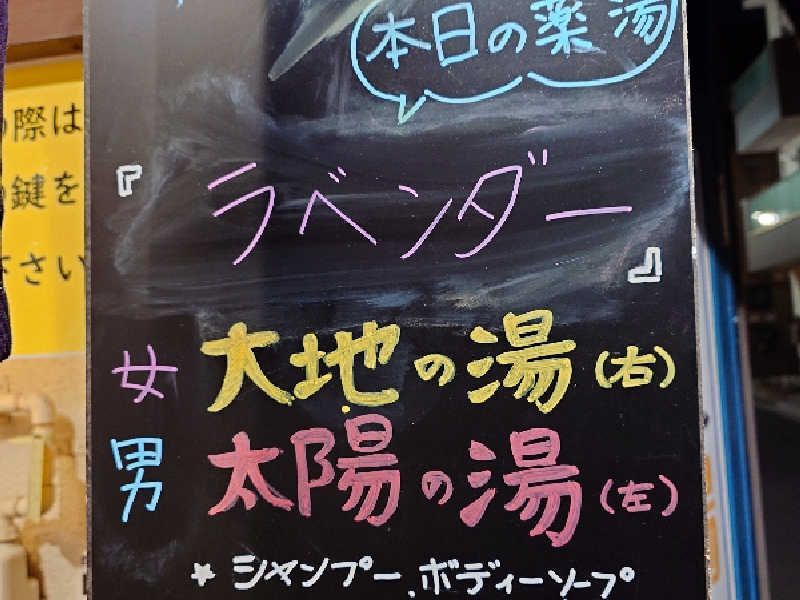 本日の薬湯
『ラベンダー』
女 大地の湯(右)
男 太陽の湯(左)
★シャンプー、ボディーソープ
際は
鍵を
さい